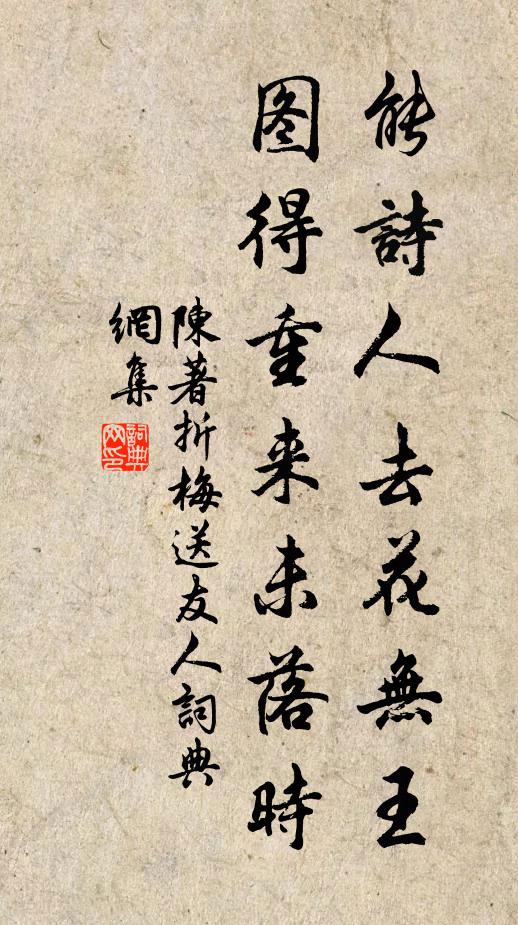 能詩人去花無王
图得重来未落時
陳著折梅送友人詞典
網集
詞典
网印